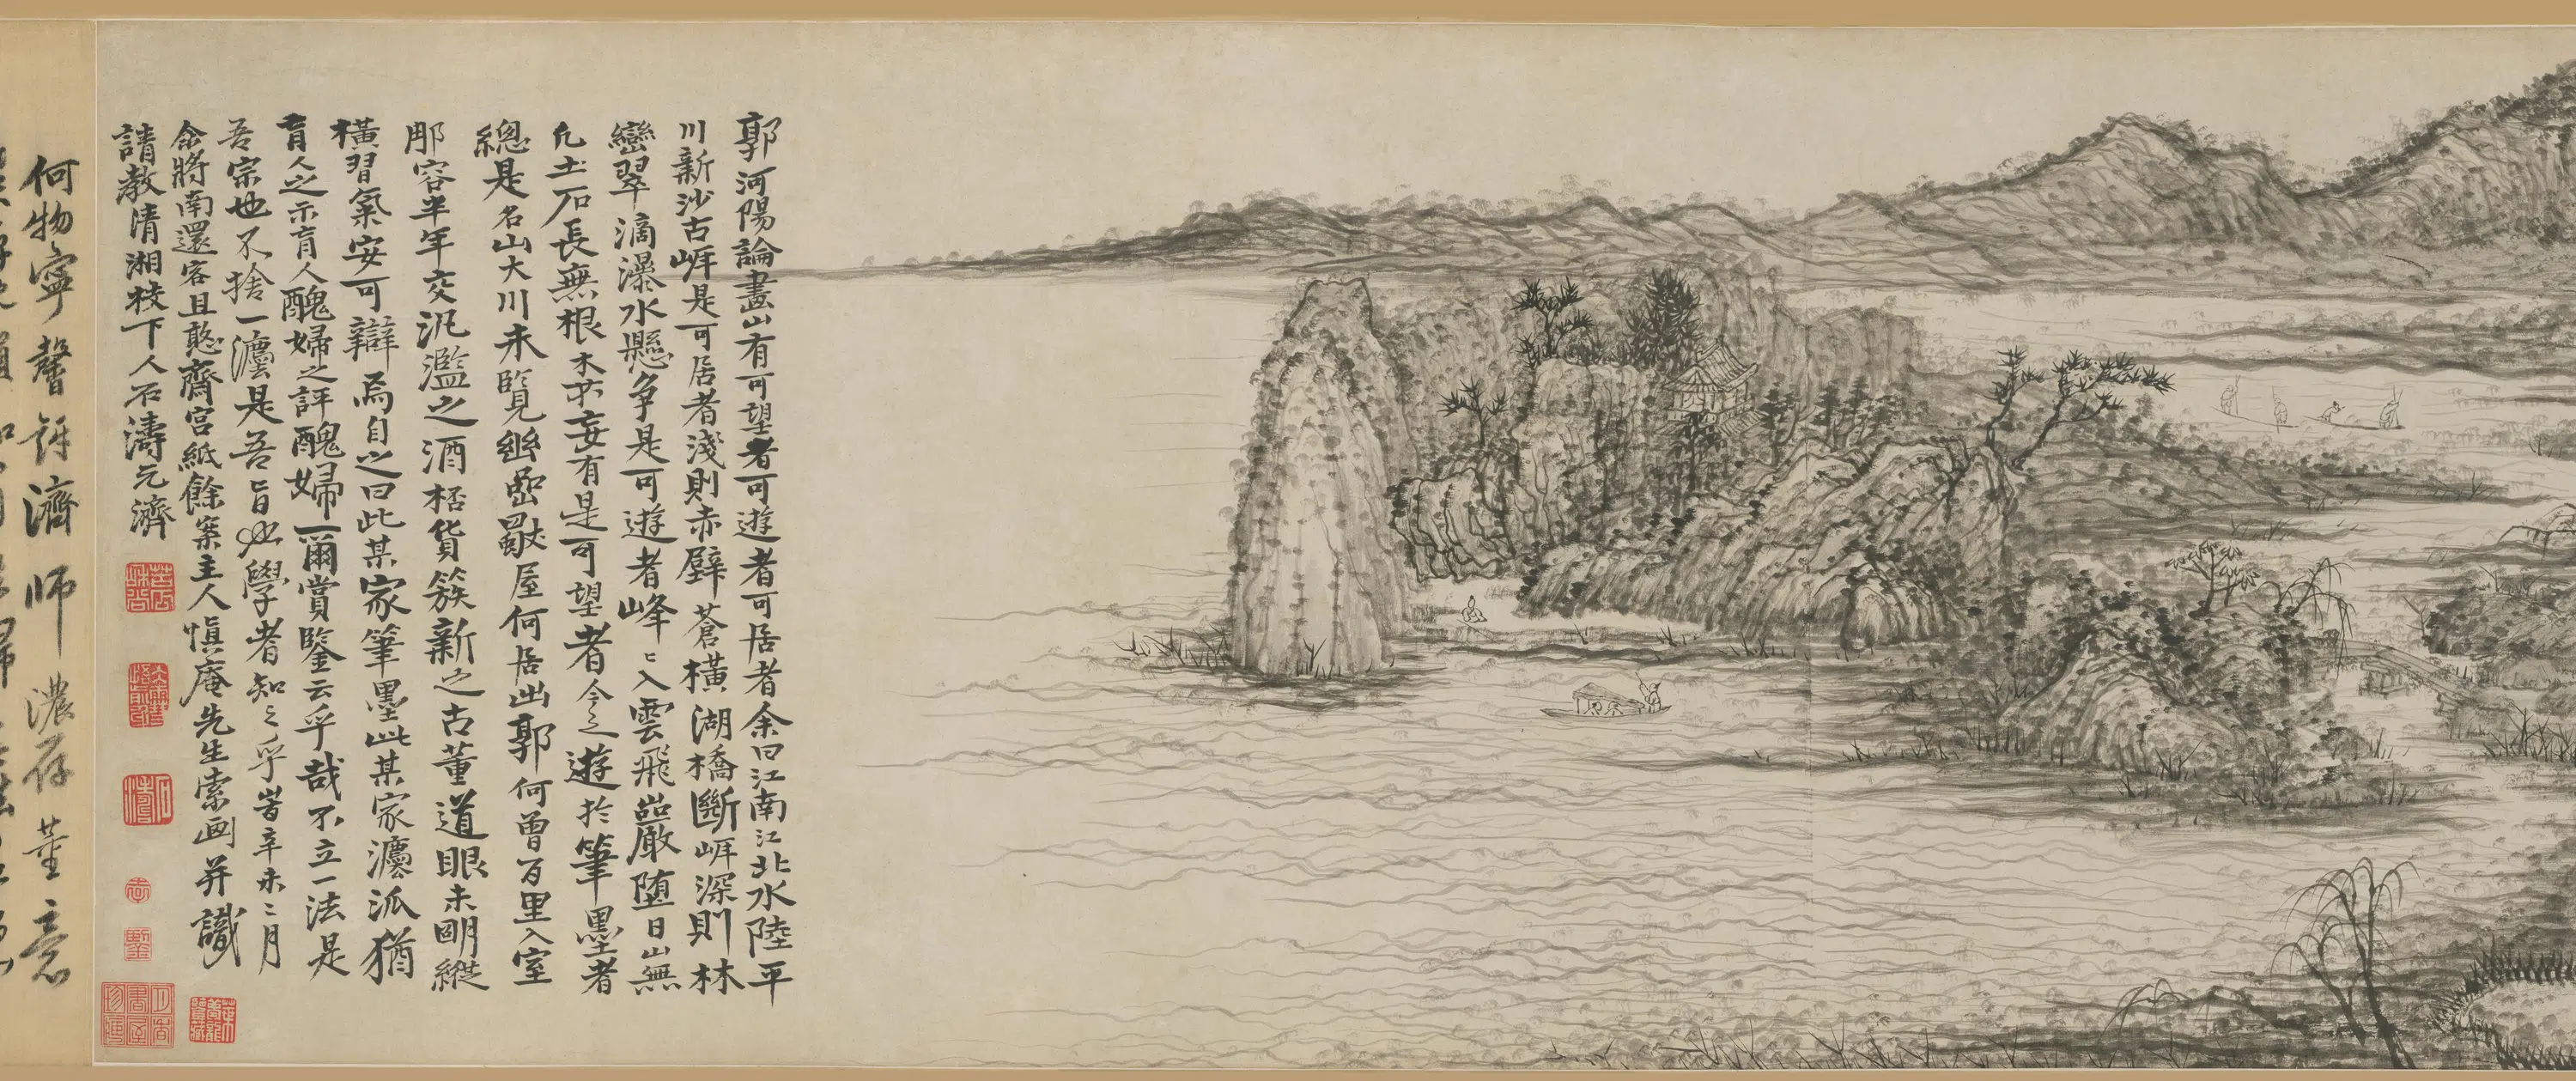 郭河陽論畫山有可望者可遊者可居者余曰江南江北水陸平
川新沙古岸是可居者淺則赤壁蒼橫湖橋斷岸深則林
巒翠滴瀑水懸爭是可遊者峰〻入雲飛巖墮日山無
凡土石長無根木不妄有是可望者今之遊於筆墨者
總是名山大川未覽幽巖獨屋何居出郭何曾百里入室
那容半年交汎濫之酒桮貨簇新之古董道眼未明縱
橫習氣安可辯焉自之曰此某家筆墨此某家灋派猶
盲人之示盲人醜婦之評醜婦爾賞鑒云乎哉不立一法是
吾宗也不捨一灋是吾旨也學者知之乎旹辛未二月
余將南還客且憨齋宮紙餘案主人慎庵先生索画并識
請教清湘枝下人石濤元濟
何物寧馨詡濟師濃存董意